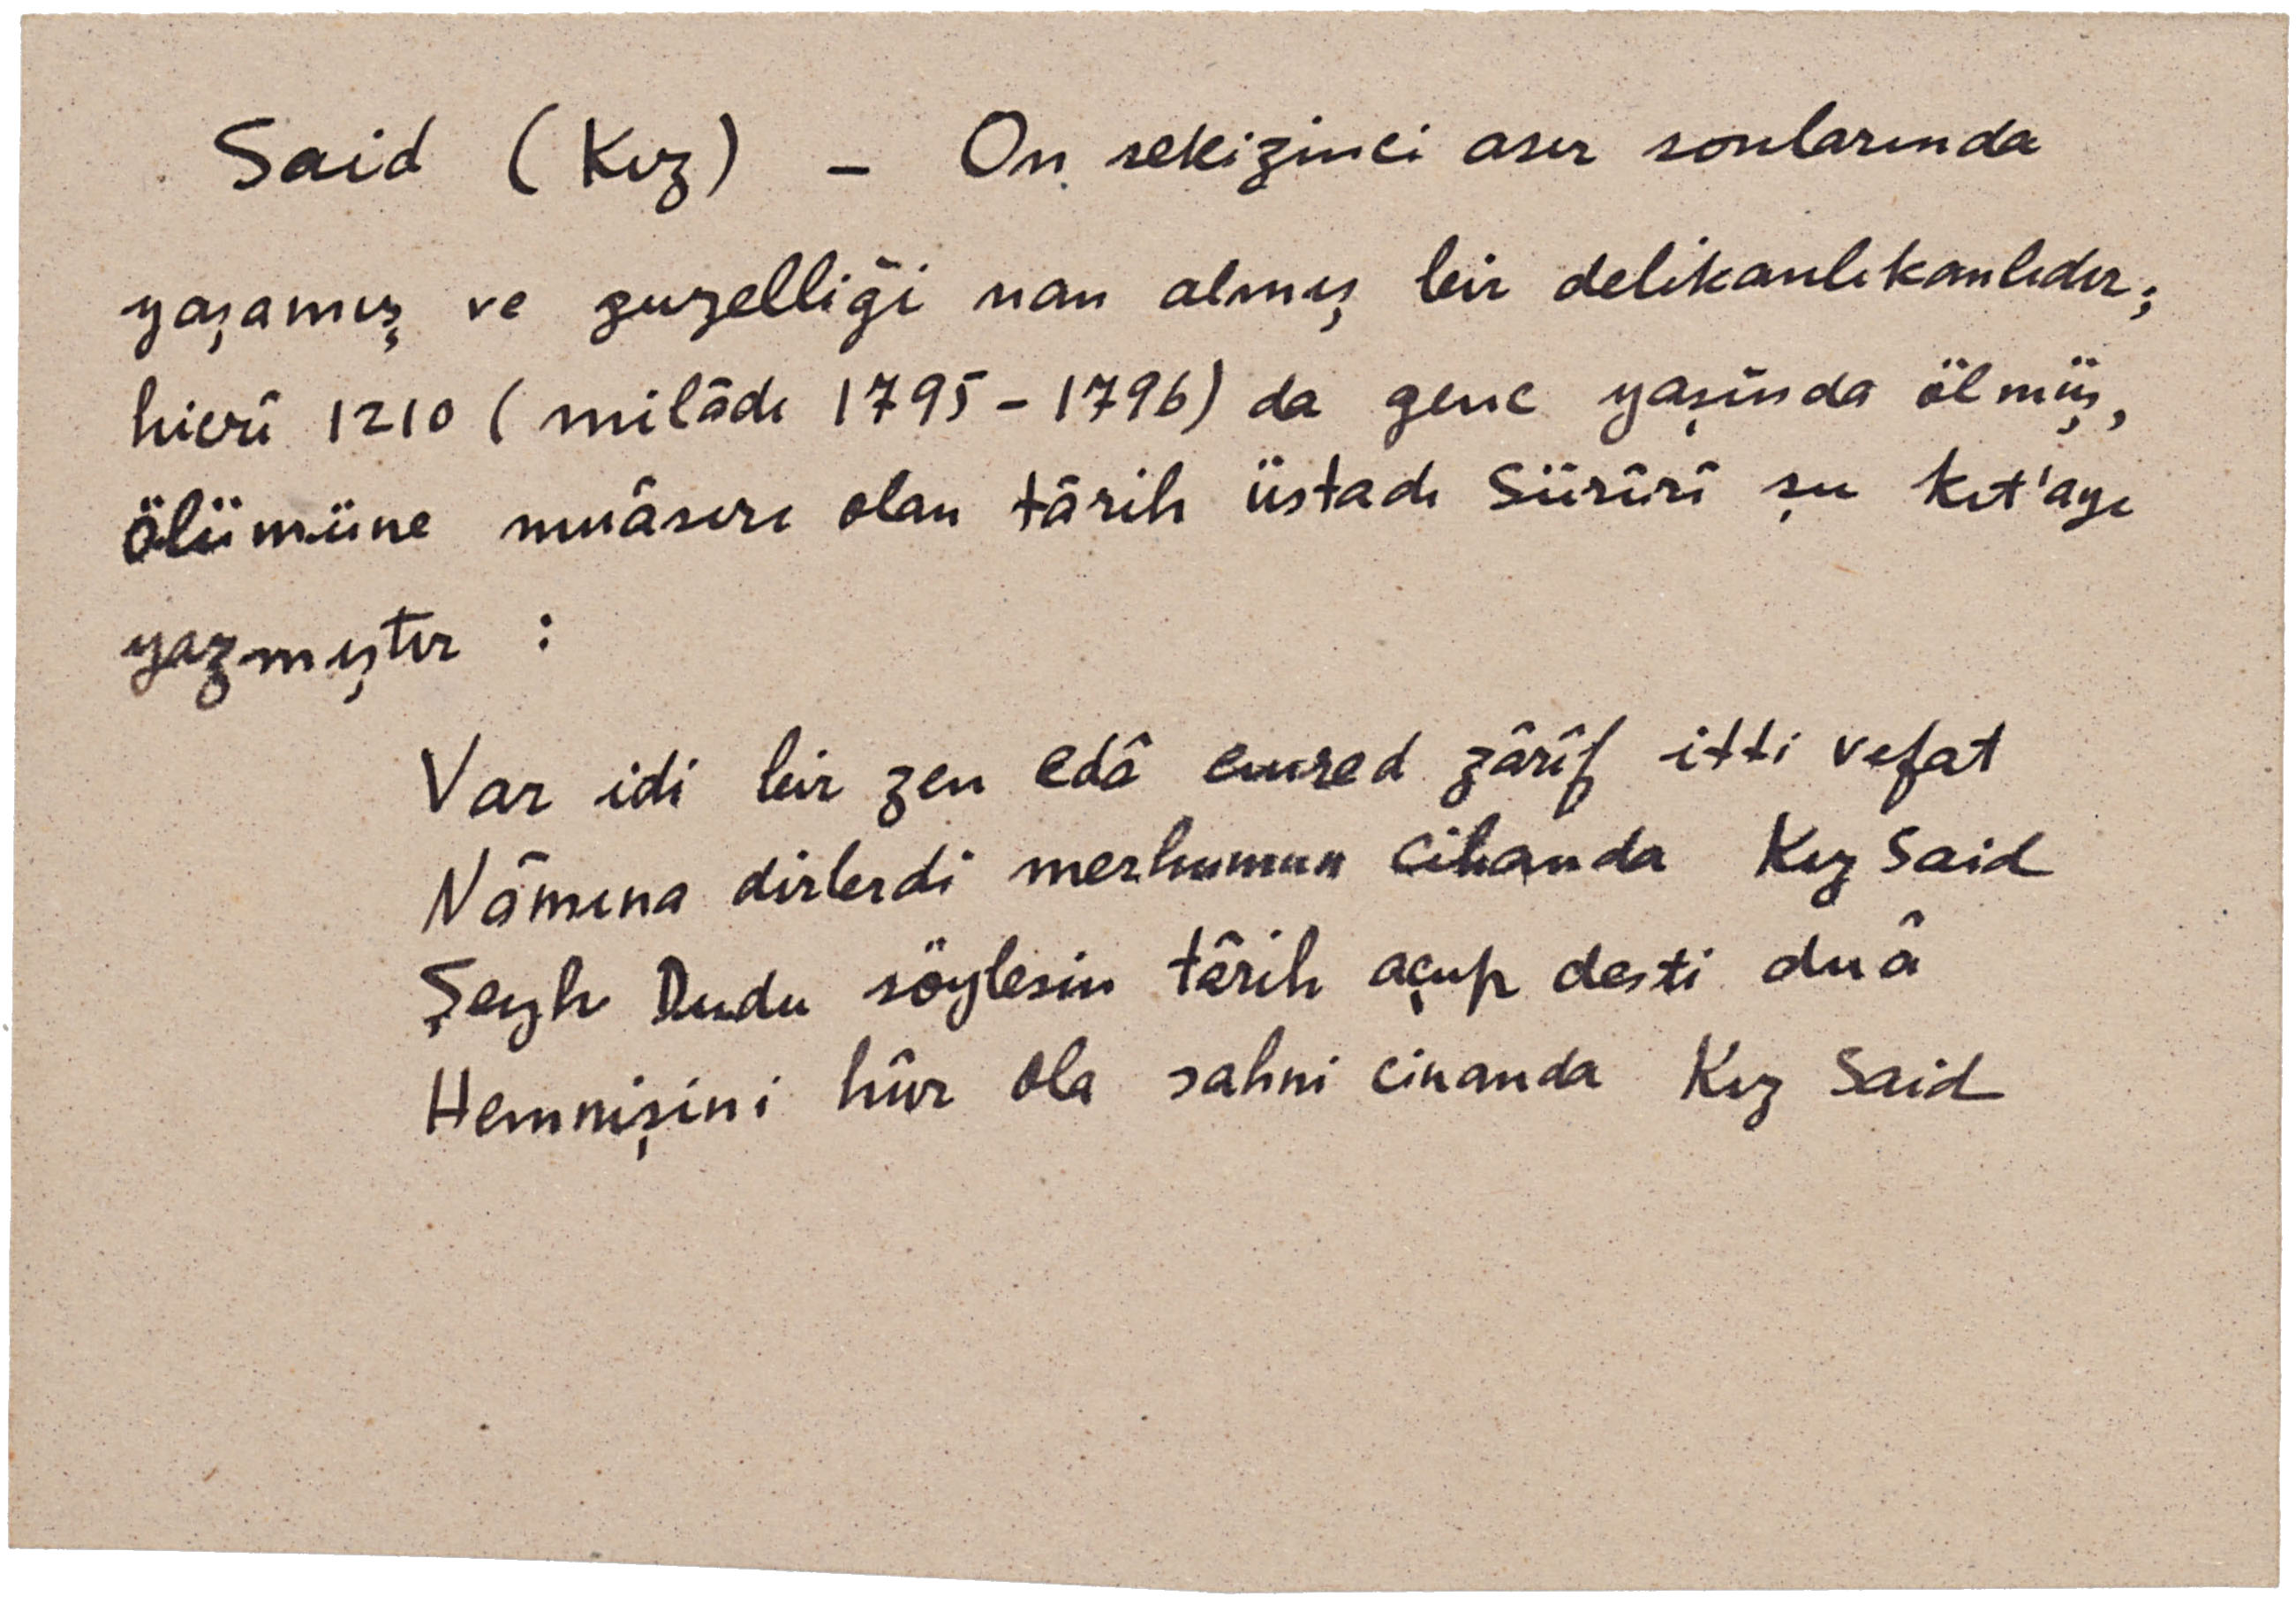 Said (Kız) - On sekizinci asır sonlarında
yaşamış ve güzelliği nan almış bir delikanlıkanlıdır;
hicrî 1210 (milâdı 1795-1796) da genc yaşında ölmüş,
ölümüne muâsırı olan târih üstadı Sürûrî şu kıt'ayı
yazmıştır :
Var idi bir zen edâ emred zârîf itti vefat
Nâmına dirlerdi merhumun cihanda Kız Said
Şeyh Dudu söylesin târih açup desti duâ
Hemnişini hûr ola sahni cinanda Kız Said